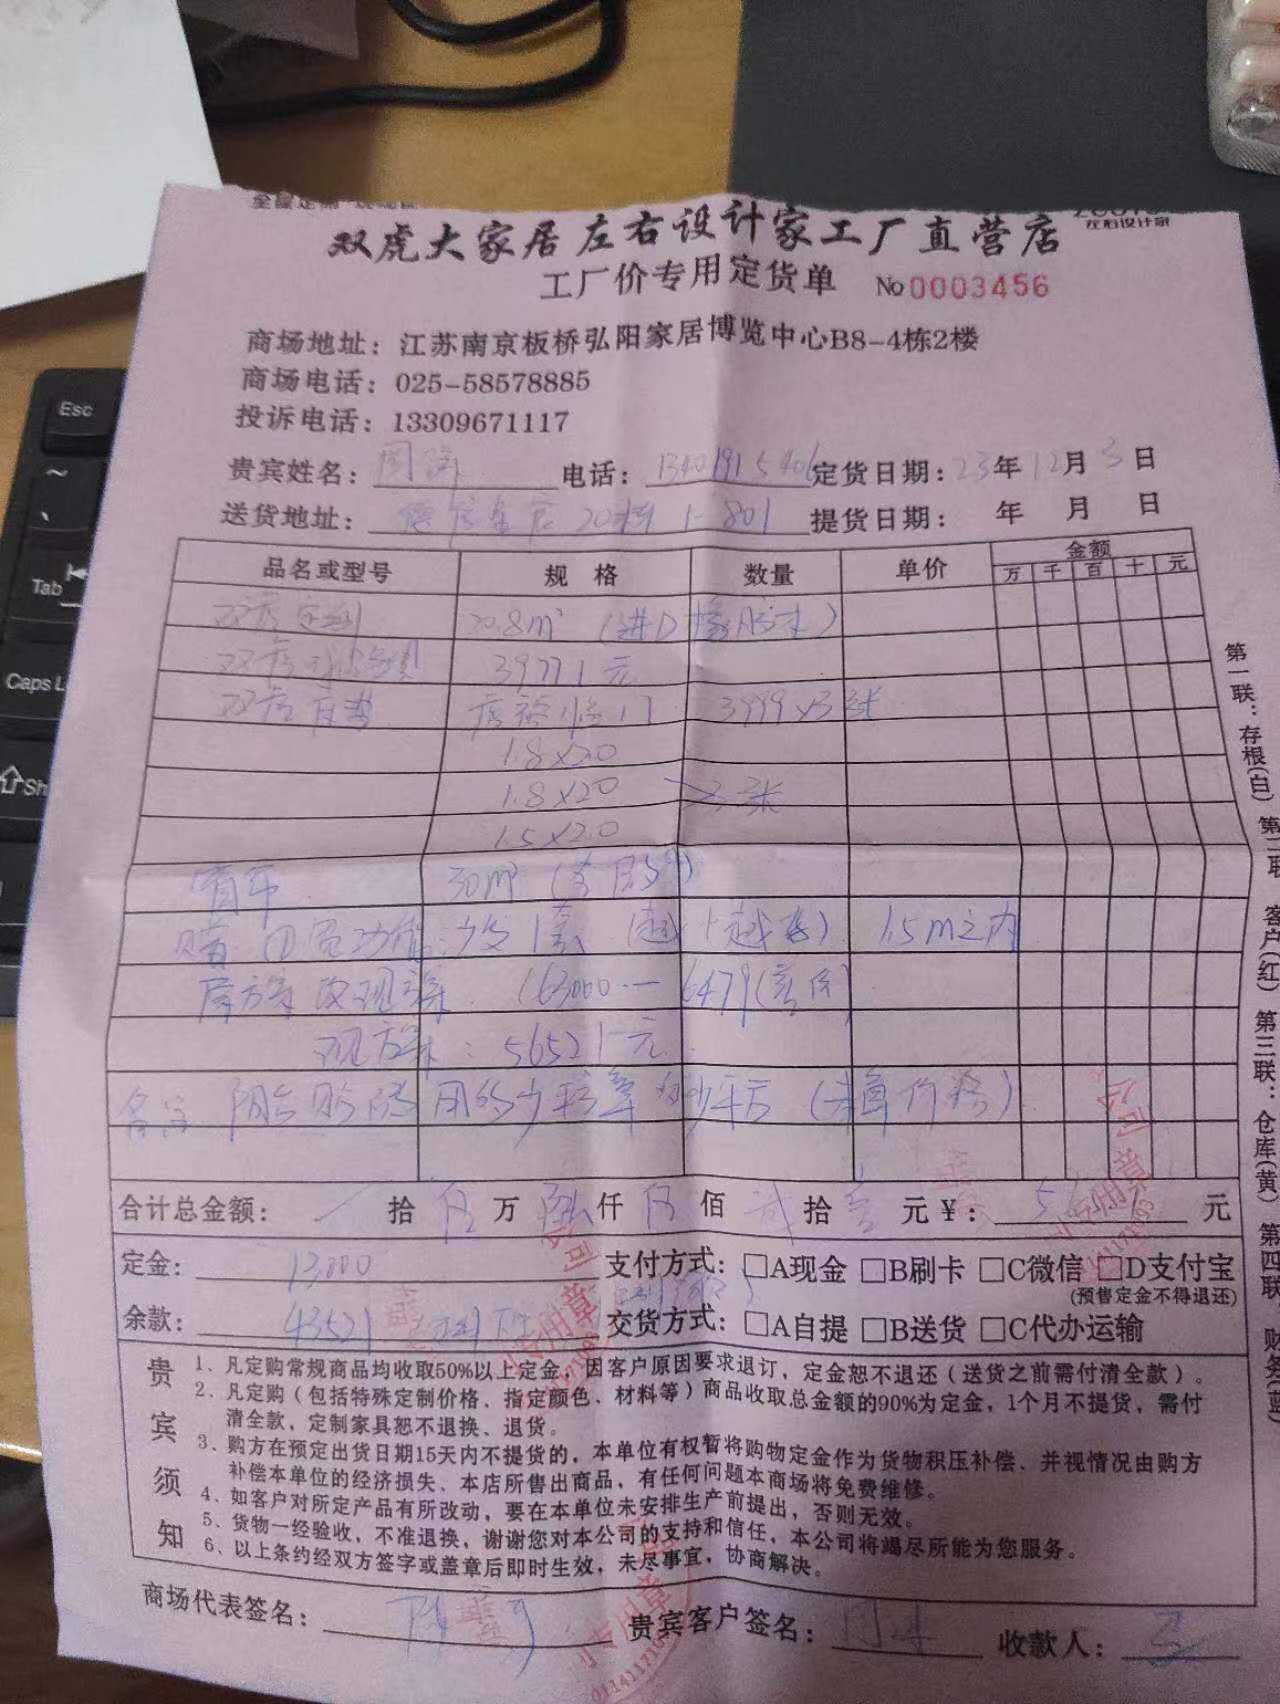 左右设计家
双虎大家居 左右设计家工厂直营店
工厂价专用定货单 No 0003456
商场地址：江苏南京板桥弘阳家居博览中心B8-4栋2楼
商场电话：025-58578885
投诉电话：13309671117
贵宾姓名： 电话： 定货日期：23年12月3日
送货地址： 20 1-801 提货日期： 年 月 日
品名或型号 规格 数量 单价 金额
万 千 百 十 元
双虎定制 20.8m² (进口橡胶木)
双虎 39771元
双虎床垫 3999x3张
1.8x2.0
1.8x2.0 3张
1.5x2.0
30m²
沙发1套 1.5m之内
原方案改现方案 (63000-6479
现方案：56521元
备注 阳台
合计总金额： 拾 伍 万 陆 仟 伍 佰 贰 拾 壹 元 ¥： 元
定金：13000 支付方式：□A现金 □B刷卡 □C微信 □D支付宝
(预售定金不得退还)
余款：43521 交货方式：□A自提 □B送货 □C代办运输
贵宾须知
1、凡定购常规商品均收取50%以上定金，因客户原因要求退订，定金恕不退还（送货之前需付清全款）。
2、凡定购（包括特殊定制价格、指定颜色、材料等）商品收取总金额的90%为定金，1个月不提货，需付
清全款，定制家具恕不退换、退货。
3、购方在预定出货日期15天内不提货的，本单位有权暂将购物定金作为货物积压补偿、并视情况由购方
补偿本单位的经济损失、本店所售出商品，有任何问题本商场将免费维修。
4、如客户对所定产品有所改动，要在本单位未安排生产前提出，否则无效。
5、货物一经验收，不准退换，谢谢您对本公司的支持和信任，本公司将竭尽所能为您服务。
6、以上条约经双方签字或盖章后即时生效，未尽事宜，协商解决。
商场代表签名： 贵宾客户签名： 收款人：
第一联：存根(白) 第二联 客户(红) 第三联：仓库(黄) 第四联 财务(蓝)
Esc
Tab
Caps L
Sh